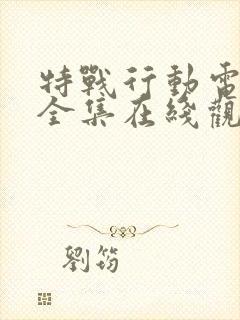 特戰行動電
全集在綫觀
劉筠